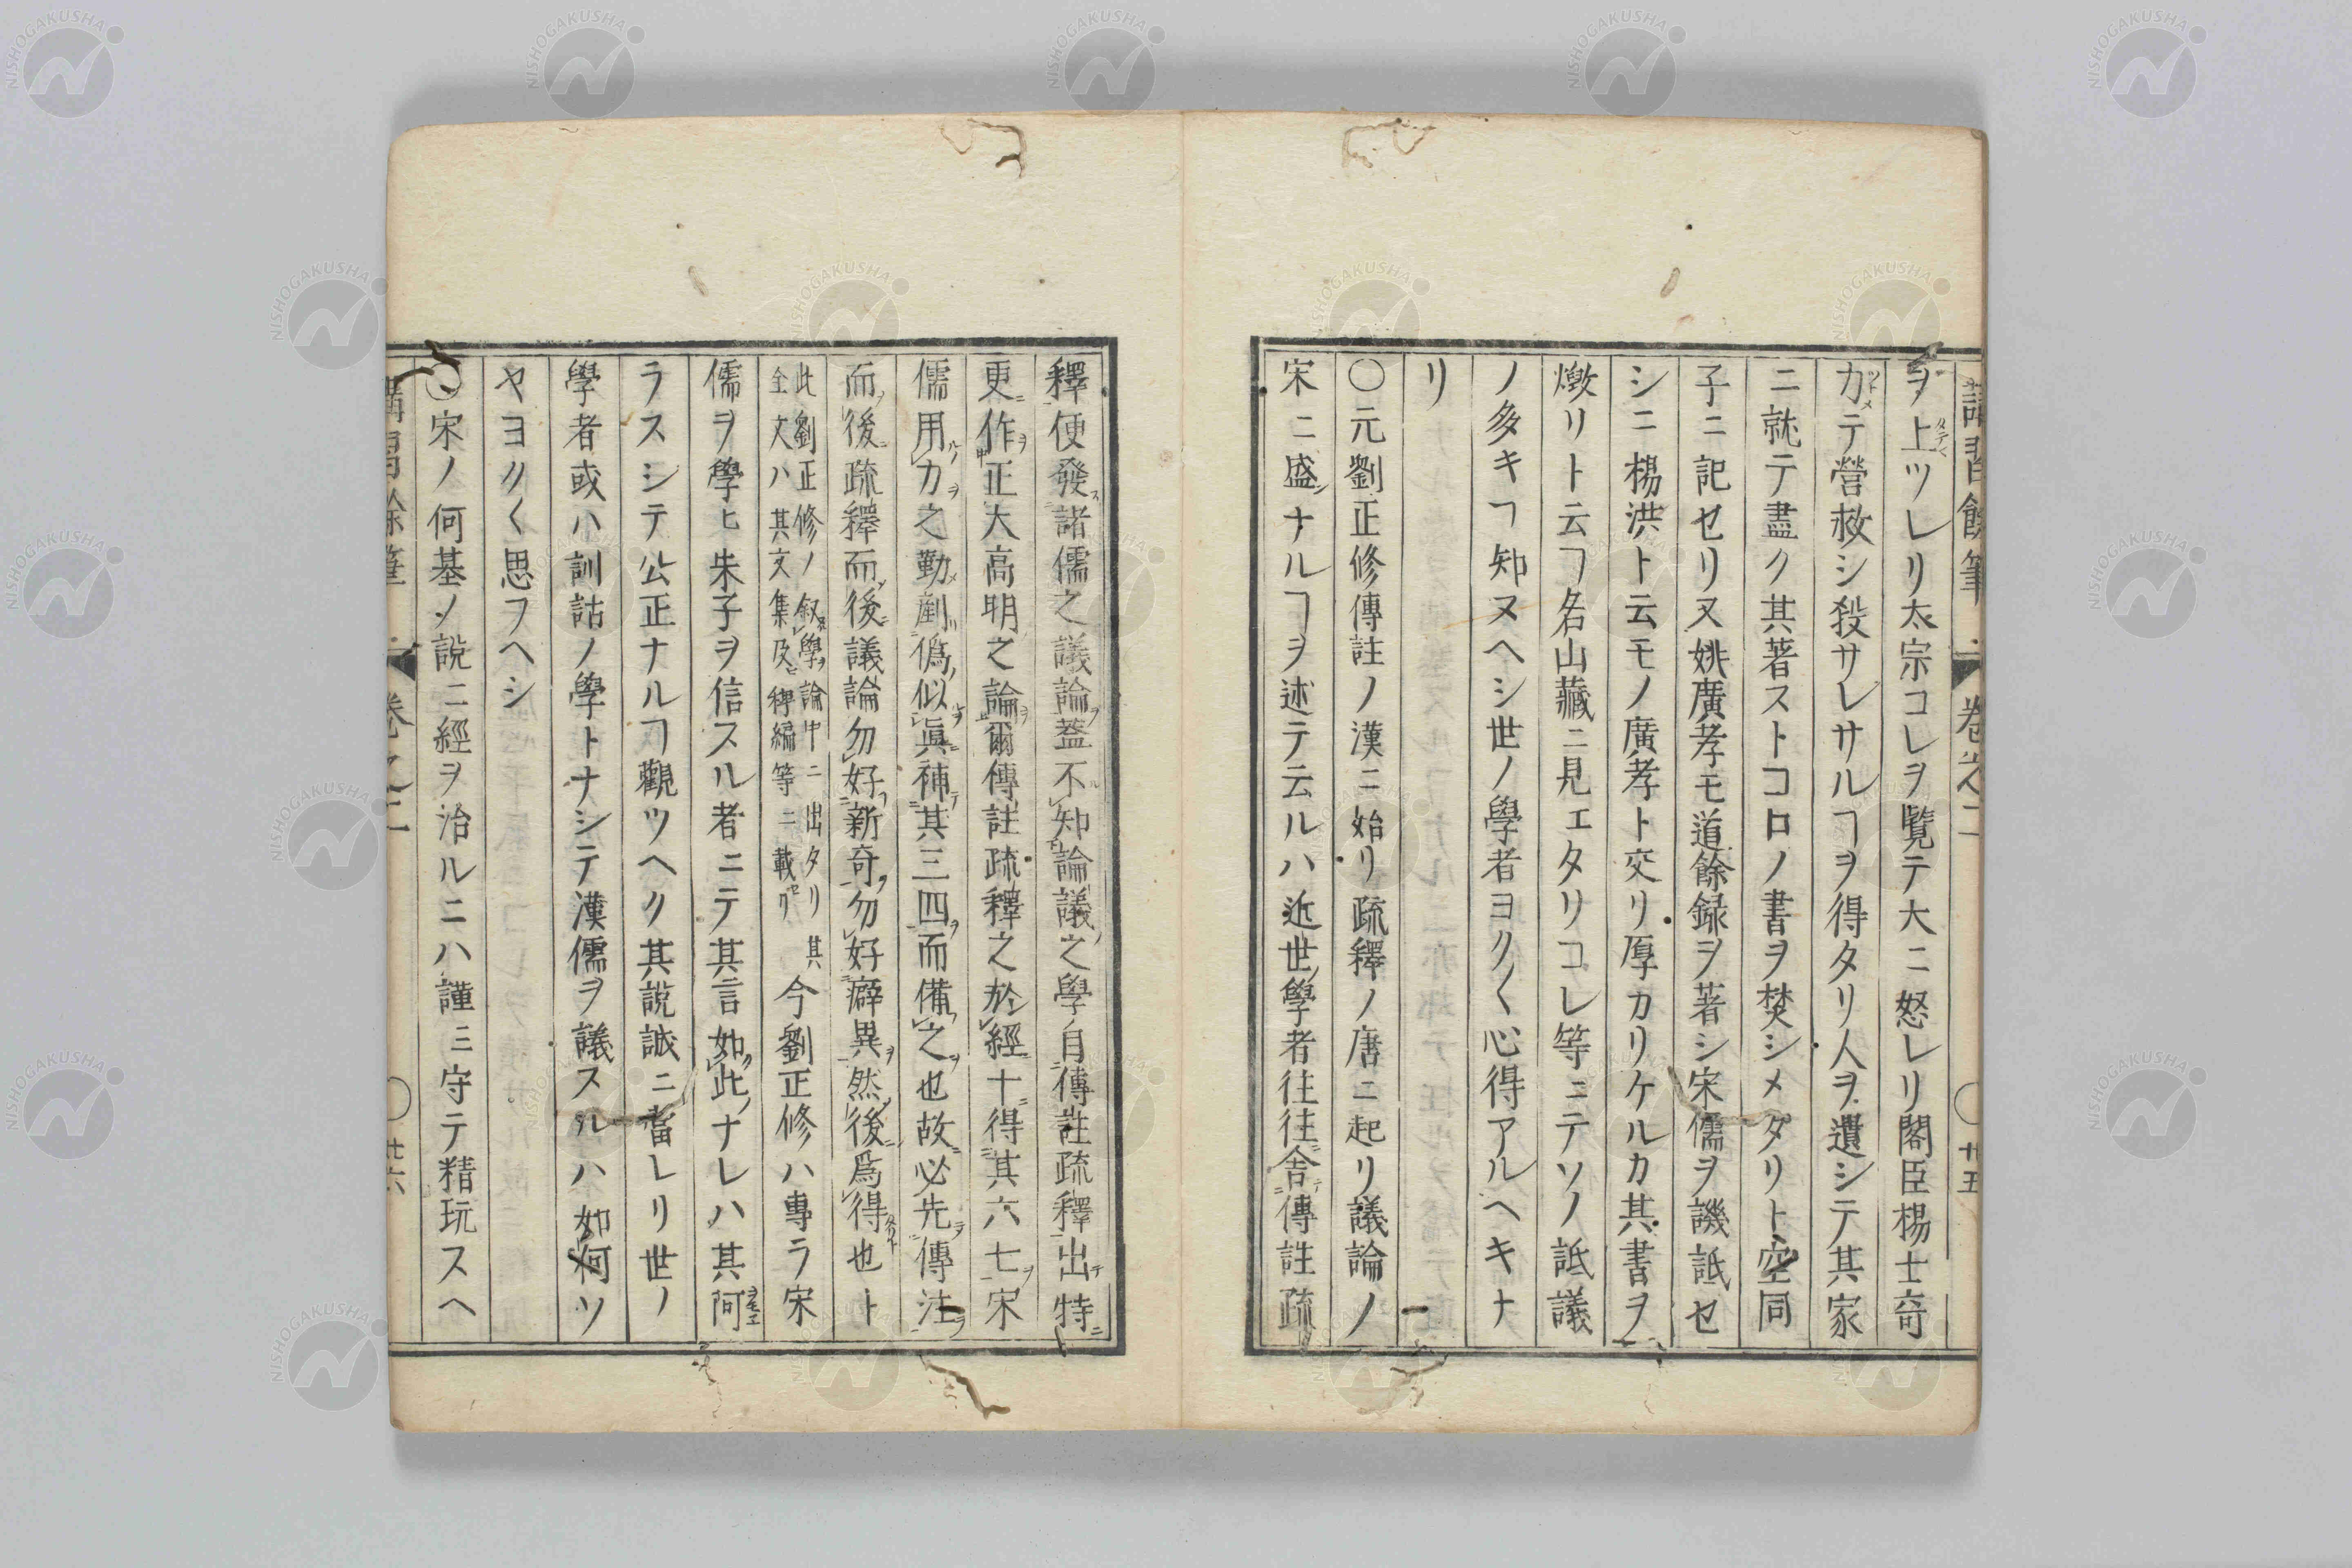 ヲ上ツレリ太宗コレヲ覽テ大ニ怒レリ閣臣楊士竒
力テ營救シ殺サレサルヿヲ得タリ人ヲ遺シテ其家
ニ就テ盡ク其著ストコロノ書ヲ焚シメタリト空同
子ニ記セリ又姚廣孝モ道餘録ヲ著シ宋儒ヲ譏詆セ
シニ楊洪ト云モノ廣孝ト交リ厚カリケルカ其書ヲ
燬リト云ヿ名山藏ニ見エタリコレ等ニテソノ詆議
ノ多キヿ知ヌヘシ世ノ學者ヨク〱心得アルヘキナ
リ
〇元劉正修傳註ノ漢ニ始リ疏釋ノ唐ニ起リ議論ノ
宋ニ盛ナルヿヲ述テ云ルハ近世學者往往舎傳註疏
釋便發諸儒之議論蓋不知論議之學自傳註疏釋出特
更作正大高明之論爾傳註疏釋之於經十得其六七宋
儒用力之勤剷僞似眞補其三四而備之也故必先傳注
而後疏釋而後議論勿好新奇勿好癖異然後爲得也ト
此劉正修ノ叙學論中ニ出タリ其
全文ハ其文集及稗編等ニ載タリ
今劉正修ハ專ラ宋
儒ヲ學ヒ朱子ヲ信スル者ニテ其言如此ナレハ其阿
ラスシテ公正ナルヿ觀ツヘク其說誠ニ當レリ世ノ
學者或ハ訓詁ノ學トナシテ漢儒ヲ議スルハ如何ソ
ヤヨク〱思フヘシ
〇宋ノ何基ノ說ニ經ヲ治ルニハ謹ニ守テ精玩スヘ
講習餘筆
卷之二
廿五
講習餘筆
卷之二
廿六
NISHOGAKUSHA